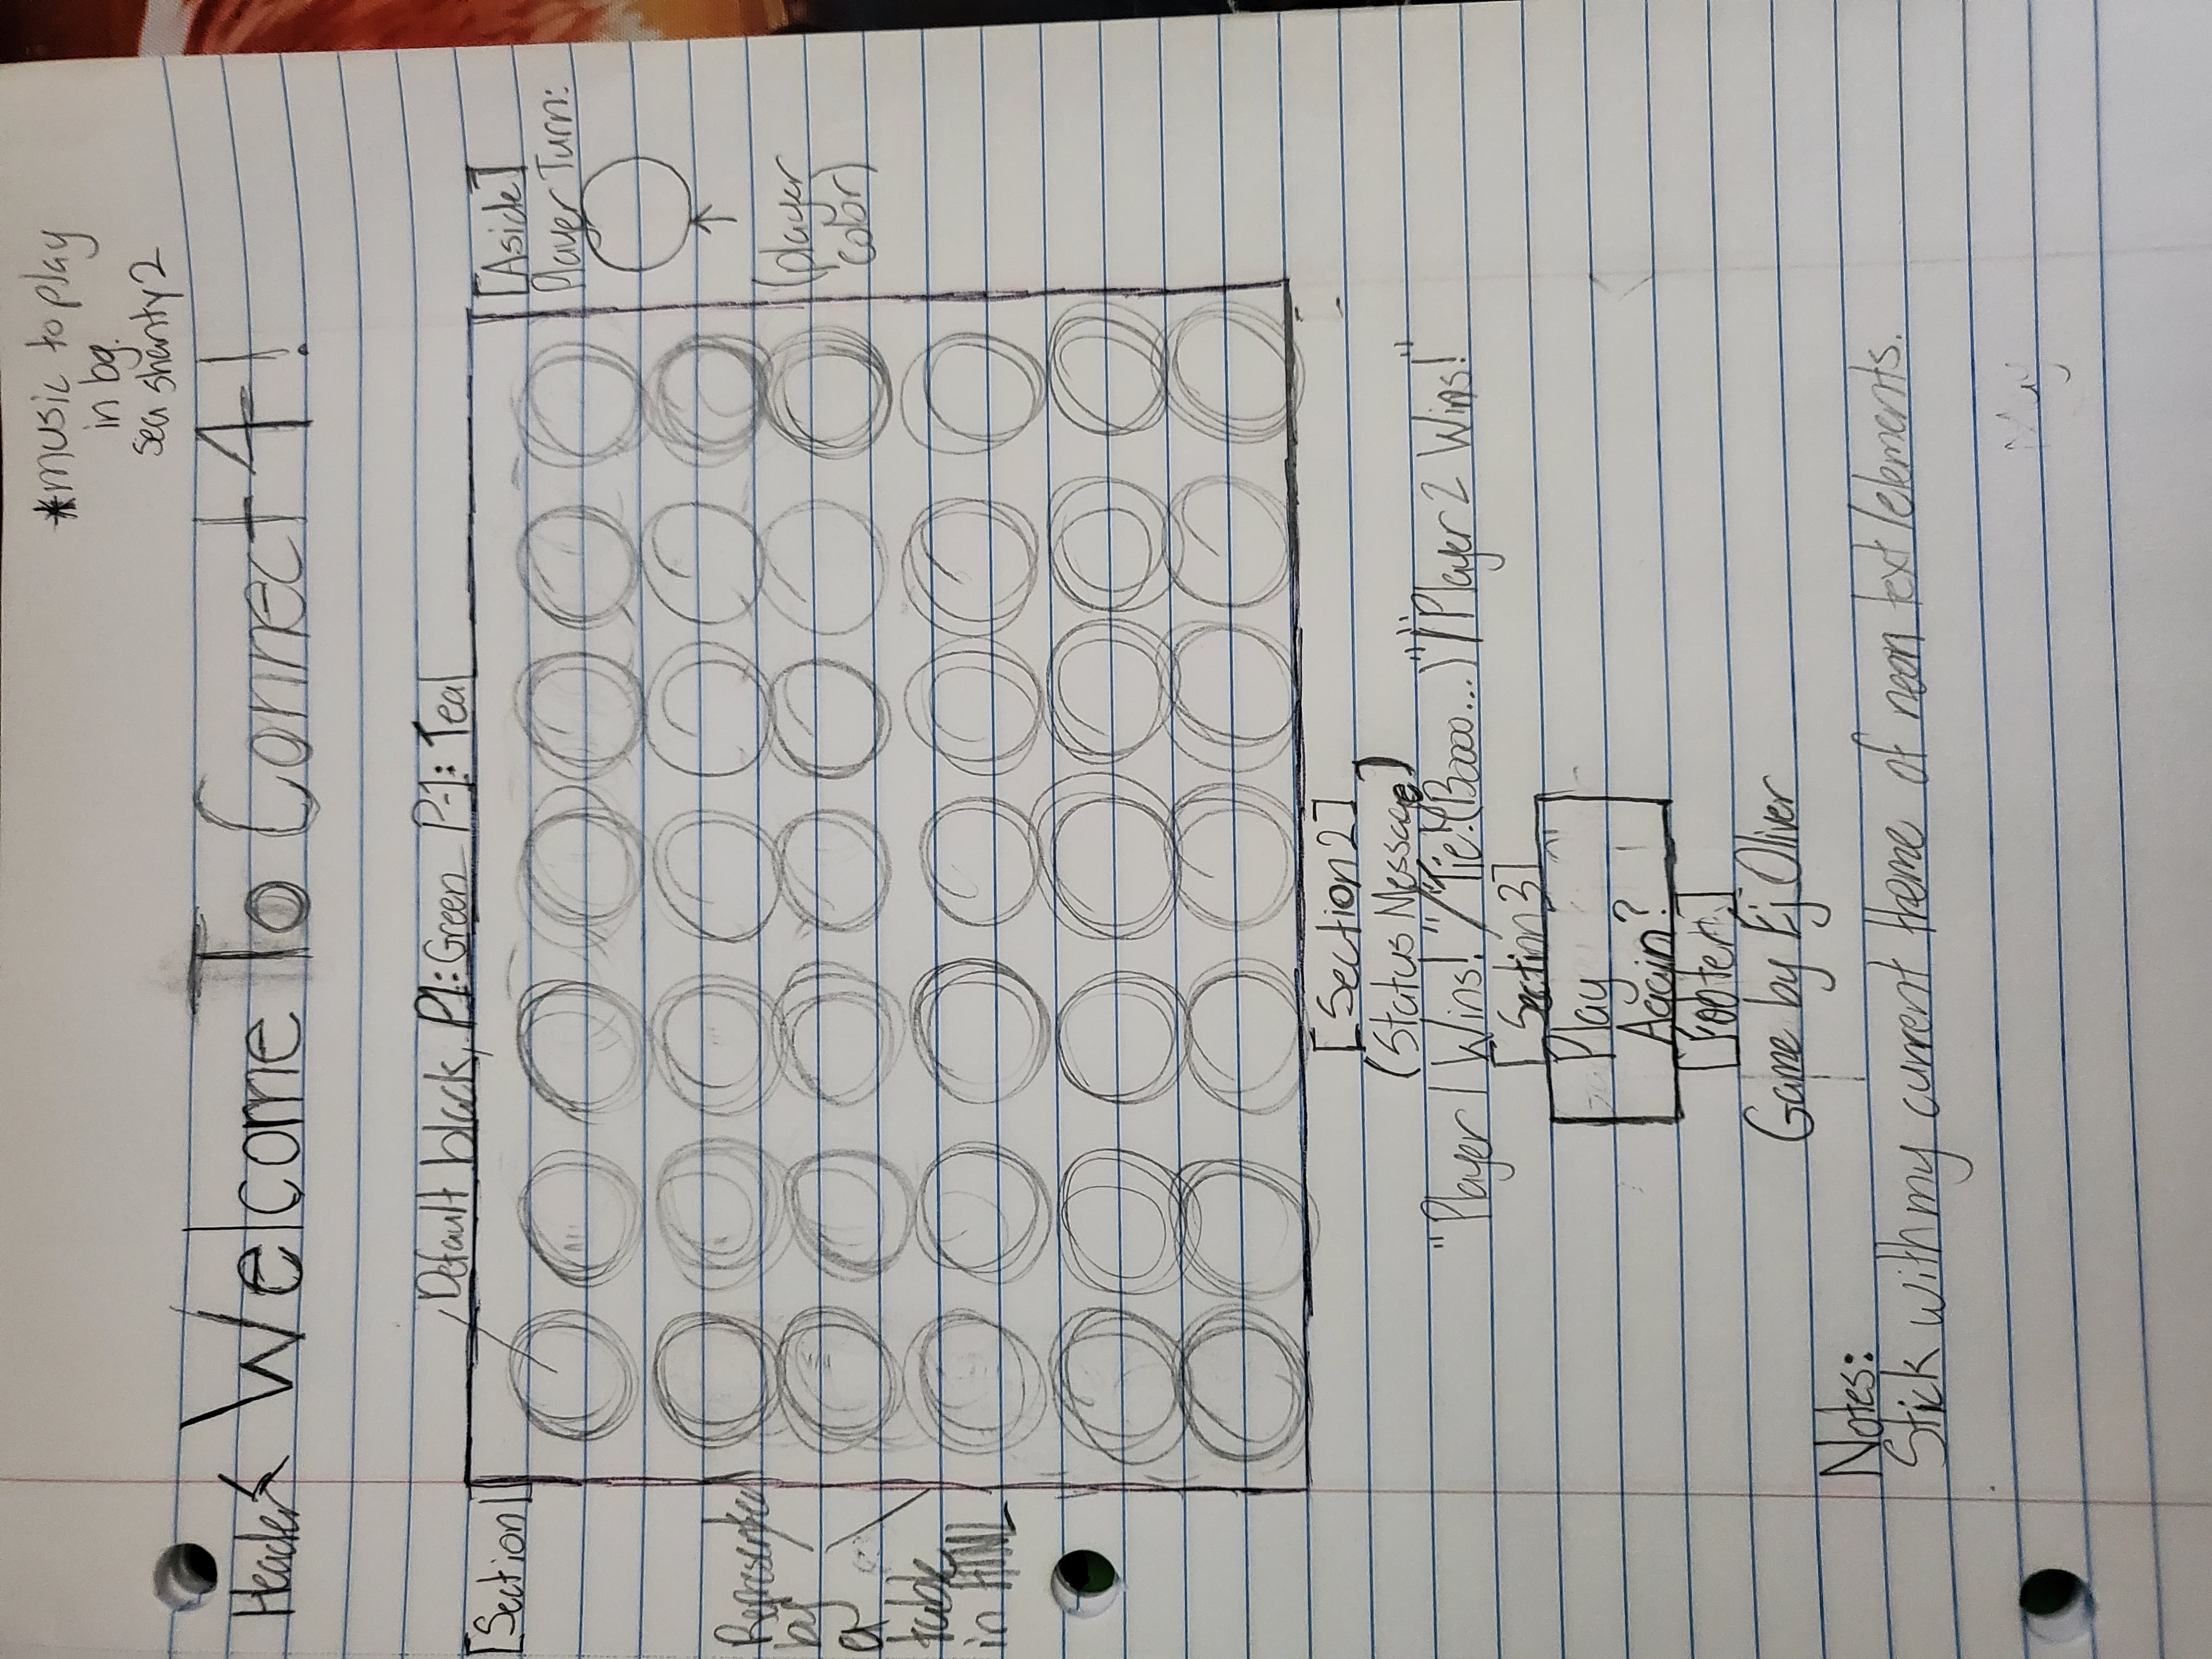 *music to play
in bg.
sea shanty 2
Header
Welcome To Connect 4!
Default black, P1: Green P-1: Teal
[Section]
[Aside]
Player Turn:
(player
color)
Represented
by
a
table
in HTML
[Section 2]
(Status Message)
"Player 1 Wins!"/"Tie!(Boooo...)"/"Player 2 Wins!"
[Section 3]
Play
Again?
[Footer]
Game by Ej Oliver
Notes:
Stick with my current theme of neon text/elements.